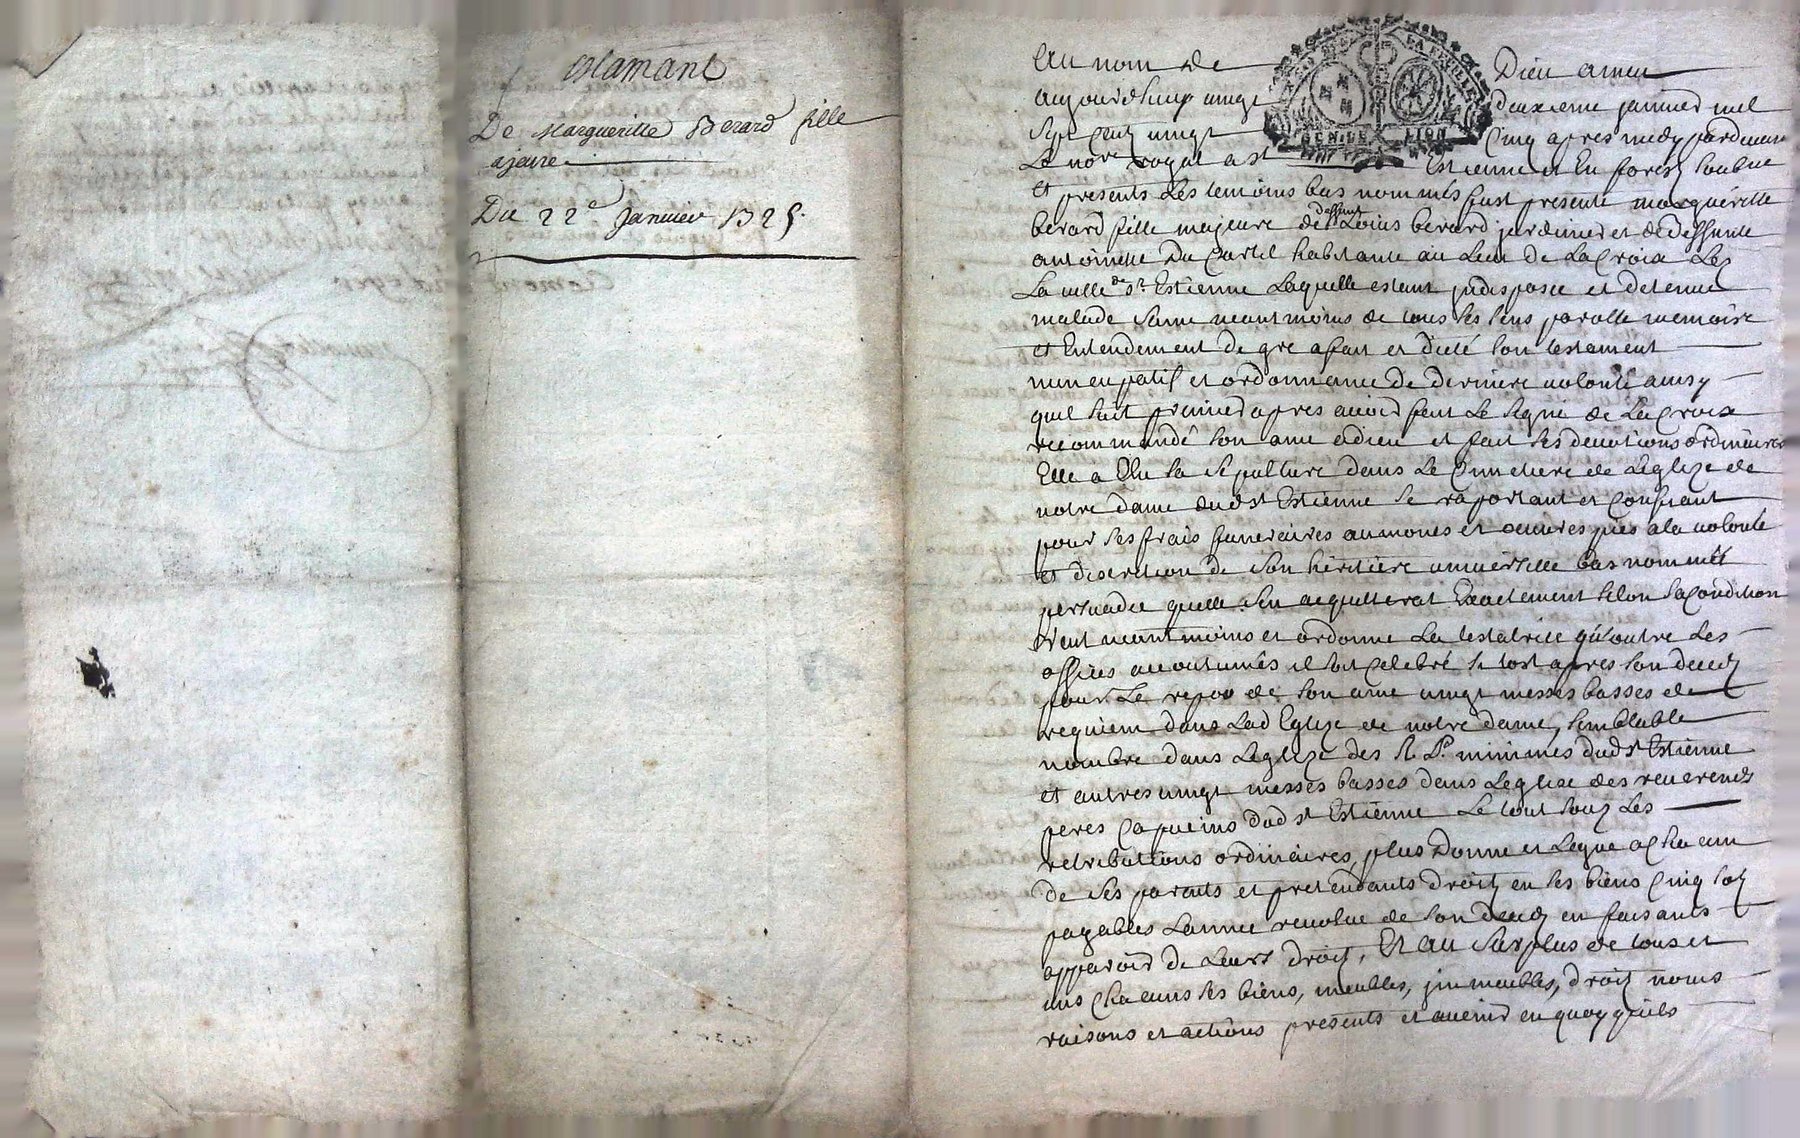 De Margueritte Berard fille
majeure
Du 22e Janvier 1725.
GEN. DE LION
Au nom de Dieu amen
aujourdhuy vingt deuxieme janvier mil
sept cent vingt cinq apres midy pardevant
Le nore royal a st Estienne et En forez soubne
et presents Les temoins bas nommés fust presente marguéritte
berard fille majeure de deffunt Loüis berard jardinier et de deffunte
antoinette Du Curtil habitante au Lieu de La Croix Lez
La ville de st Estienne Laquelle estant jndisposée et detenue
malade saine neantmoins de tous ses sens parolle memoire
et Entendement de gre a fait et dicté son testament
nuncupatif et ordonnance de derniere volonté ainsy
quil suit premier apres avoir fait Le signe de La Croix
recommandé son ame a dieu et fait ses devotions ordinaires
Elle a Elu sa sepulture dans Le Cimetiere de Leglize de
notre dame dud st Estienne se raportant et Confiant
pour ses frais funeraires aumones et oeuvres pies a la volonté
et discretion de son héritiere universelle bas nommée
persuadée quelle sen acquitterat Exactement selon sa Condition
Veut neantmoins et ordonne La testatrice qu'outre Les
offices accoutumés il soit Celebré si tost apres son deced
pour Le repos de son ame vingt messes basses de
requiem dans Lad Eglize de notre dame, semblable
nombre dans Leglize des R. P. minimes dud st Estienne
et autres vingt messes basses dans Leglize des reverends
peres Capucins dud st Estienne Le tout souz Les
retributions ordinaires, plus Donne et Legue a chacun
de ses parents et pretendants droitz en ses biens Cinq solz
payables Lannée revolue de son deced en faisants
apparoir de Leurs droitz, Et au surplus de tous et
uns chacuns ses biens, meubles, jmmeubles, droitz noms
raisons et actions presents et avenir en quoy quils